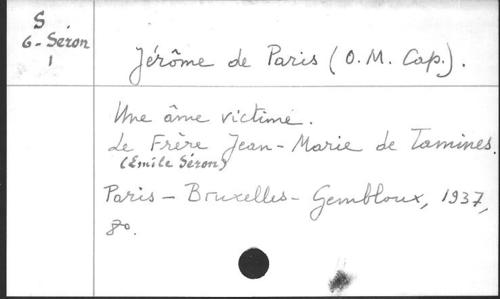 S
6 - Séron
1
Jérôme de Paris (O. M. Cap.).
Une âme victime.
Le Frère Jean-Marie de Tamines.
(Emile Séron)
Paris - Bruxelles - Gembloux, 1937,
8º.